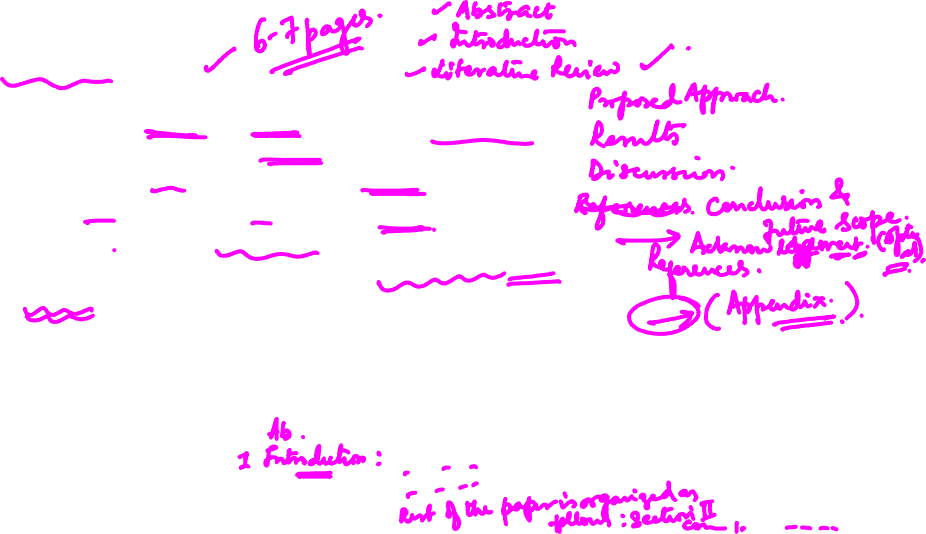 6-7 pages.
Abstract
Introduction
Literature Review
Proposed Approach.
Results
Discussion.
References. Conclusion &
Future Scope.
References.
(Appendix.).
Ab.
1 Introduction:
Rest of the paper is organized as
Section II